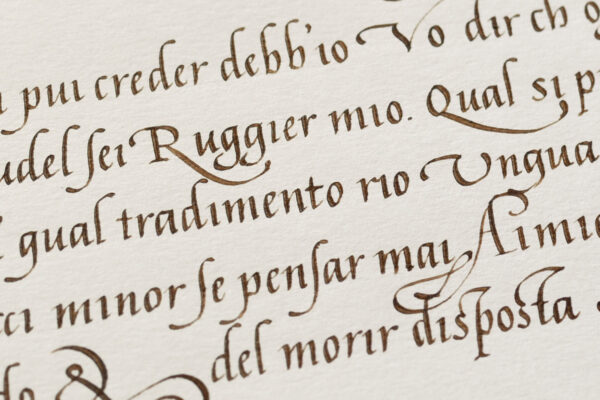 pui creder debb'io Vo dir ch
udel sei Ruggier mio. Qual si p
qual tradimento rio Ungua
cci minor se pensar mai A i mie
do & del morir disposta